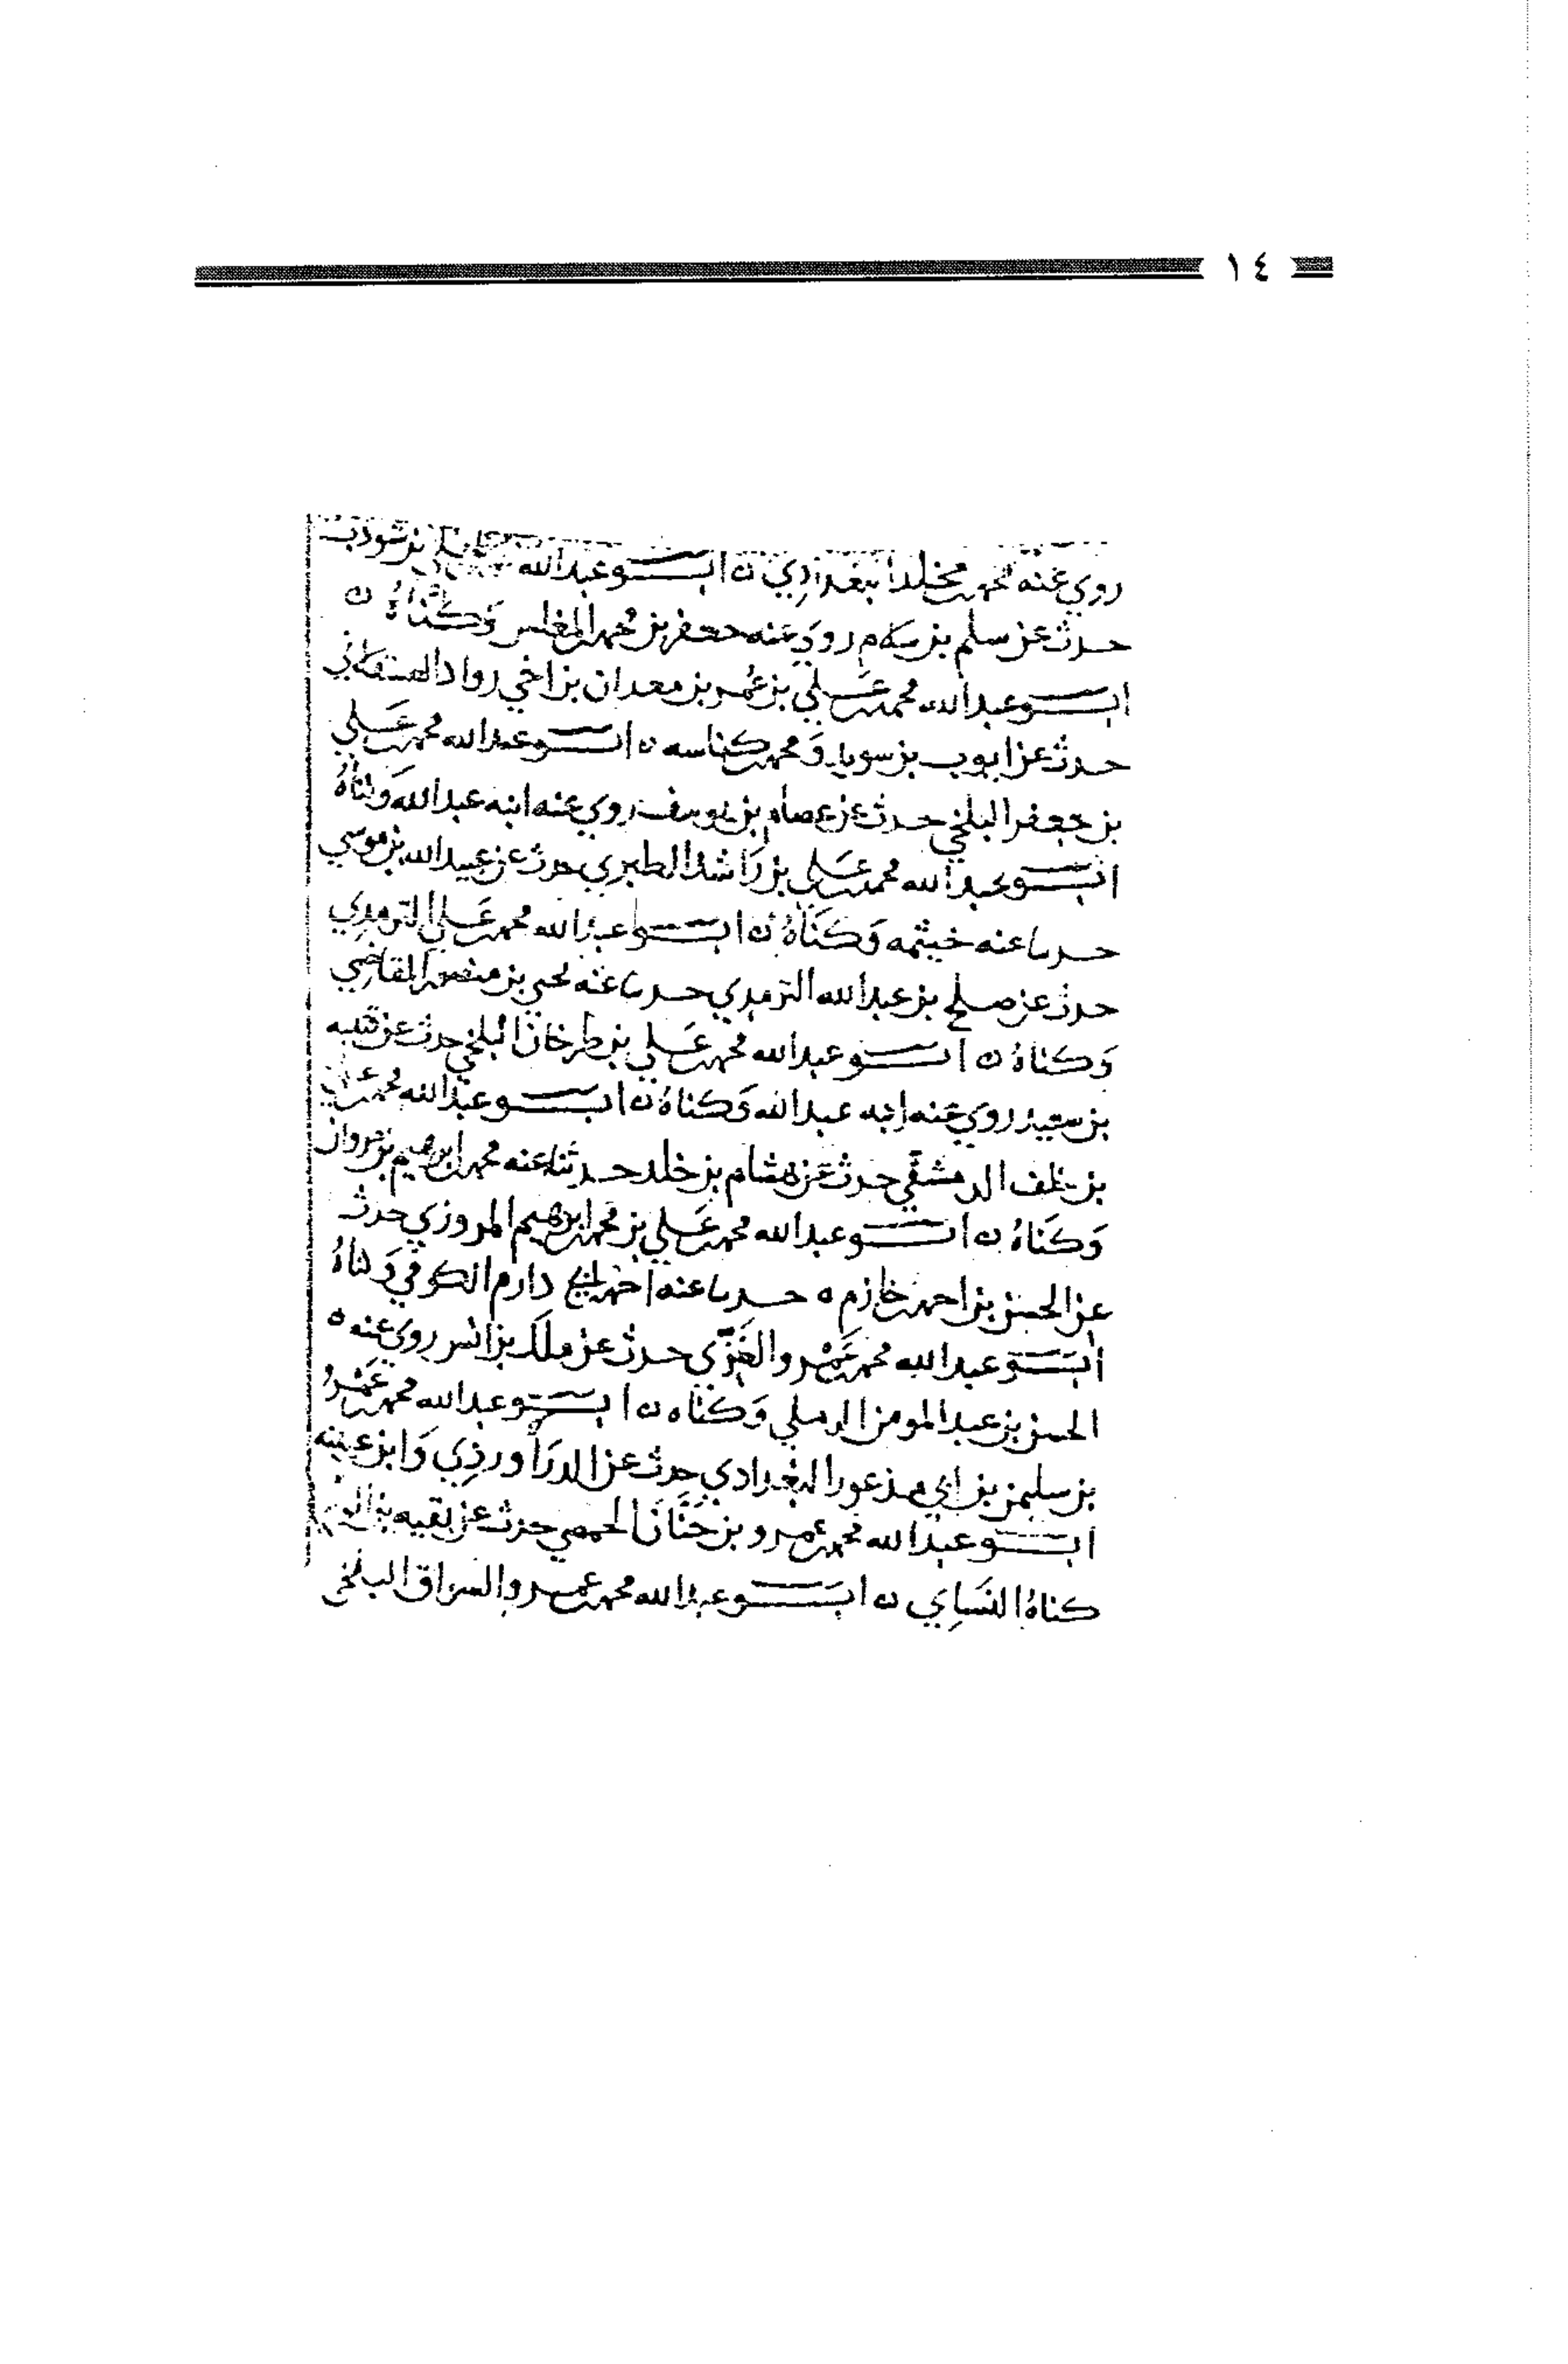 ١٤
روي عنه محمد بن مخلد البغدادي ه ابو عبد الله بن شوذب
حدث عن سلم بن سلام روى عنه جعفر بن محمد المغلس وكناه ه
ابو عبد الله محمد بن علي بن عمر بن معدان بن اخي رواد العسقلاني
حدث عن ايوب بن سويد ومحمد بن كناسه ه ابو عبد الله محمد بن علي
بن جعفر البلخي حدث عن عصام بن يوسف روي عنه ابنه عبد الله وكناهُ
ابو عبد الله محمد بن علي بن راشد الطبري حدث عن عبيد الله بن موسي
حدثنا عنه خيثمه وكناهُ ه ابو عبد الله محمد بن علي الترمذي
حدث عن صلح بن عبد الله الترمذي حدثنا عنه يحيى بن منصور القاضي
وكناهُ ه ابو عبد الله محمد بن علي بن طرخان البلخي حدث عن قتيبه
بن سعيد روي عنه ابنه عبد الله وكناهُ ه ابو عبد الله محمد بن علي
بن خلف الدمشقي حدث عن هشام بن خلد حدثنا عنه محمد بن ابرهيم بن مروان
وكناهُ ه ابو عبد الله محمد بن علي بن محمد بن ابرهيم المروزي حدث
عن الحسن بن احمد بن خازم ه حدثنا عنه احمد بن دارم الكوفي وكناهُ
ابو عبد الله محمد بن عمرو الغزي حدث عن ملك بن انس روى عنه ه
الحسن بن عبد المومن الرملي وكناه ه ابو عبد الله محمد بن عمرو
بن سليمن بن ابي مذعور البغدادي حدث عن الدراوردي وابن عيينه
ابو عبد الله محمد بن عمرو بن حنان الحمصي حدث عن بقيه بن الوليد
كناهُ النسايي ه ابو عبد الله محمد بن عمرو السواق البلخي